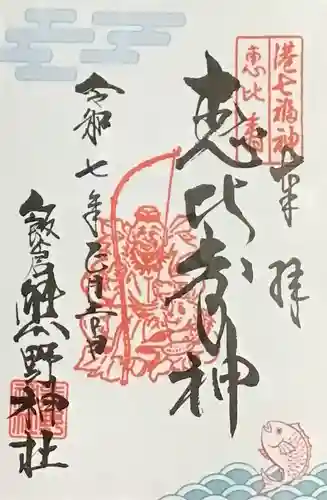 港七福神
恵比寿
奉拝
恵比寿神
令和七年正月
飯倉熊野神社